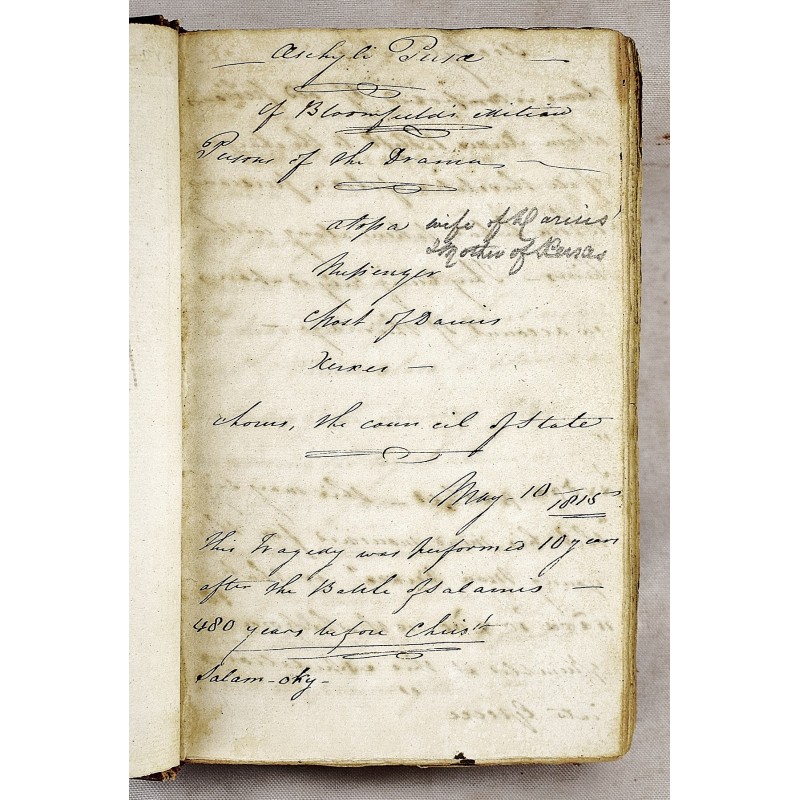 — Aschyli Persæ —
of Bloomfield's edition
Persons of the Drama —
atossa wife of Darius
& Mother of Xerxes
Messenger
Ghost of Darius
Xerxes —
chorus, the council of State
May - 10 1815
This Tragedy was performed 10 years
after the Battle of Salamis —
480 years before Christ
Salam-